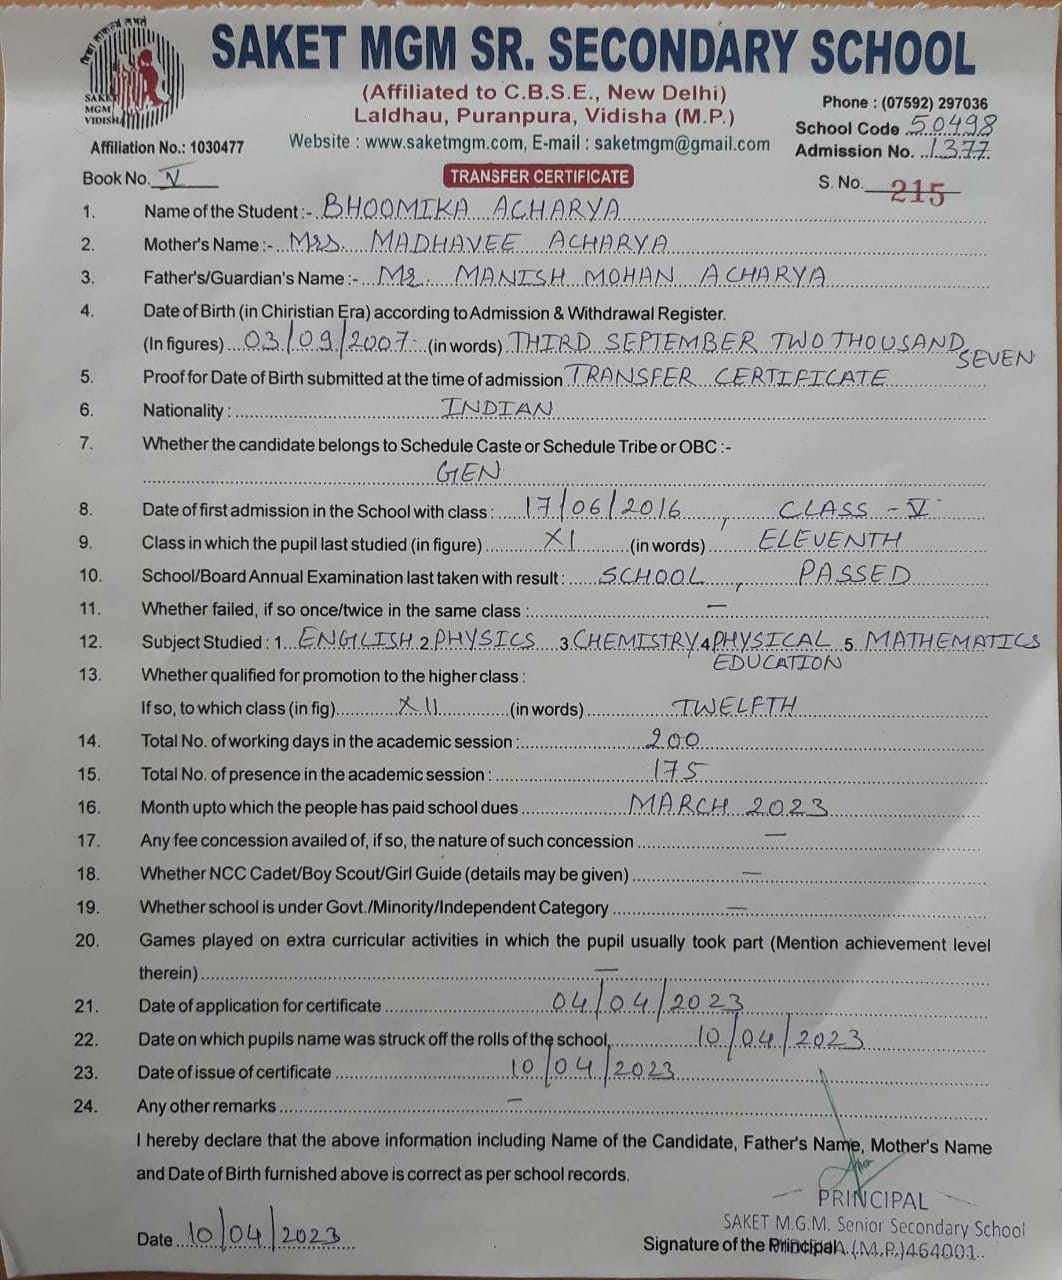 SAKET MGM SR. SECONDARY SCHOOL
SAKET
MGM
VIDISHA
(Affiliated to C.B.S.E., New Delhi)
Laldhau, Puranpura, Vidisha (M.P.)
Phone : (07592) 297036
School Code 50498
Affiliation No.: 1030477
Website : www.saketmgm.com, E-mail : saketmgm@gmail.com
Admission No. 1377
Book No. V
TRANSFER CERTIFICATE
S. No. 215
1. Name of the Student :- BHOOMIKA ACHARYA
2. Mother's Name :- Mrs. MADHAVEE ACHARYA
3. Father's/Guardian's Name :- Mr. MANISH MOHAN ACHARYA
4. Date of Birth (in Chiristian Era) according to Admission & Withdrawal Register.
(In figures) 03/09/2007 (in words) THIRD SEPTEMBER TWO THOUSAND SEVEN
5. Proof for Date of Birth submitted at the time of admission TRANSFER CERTIFICATE
6. Nationality : INDIAN
7. Whether the candidate belongs to Schedule Caste or Schedule Tribe or OBC :-
GEN
8. Date of first admission in the School with class : 17/06/2016, CLASS - V
9. Class in which the pupil last studied (in figure) XI (in words) ELEVENTH
10. School/Board Annual Examination last taken with result : SCHOOL, PASSED
11. Whether failed, if so once/twice in the same class : —
12. Subject Studied : 1. ENGLISH 2. PHYSICS 3. CHEMISTRY 4. PHYSICAL EDUCATION 5. MATHEMATICS
13. Whether qualified for promotion to the higher class :
If so, to which class (in fig) XII (in words) TWELFTH
14. Total No. of working days in the academic session : 200
15. Total No. of presence in the academic session : 175
16. Month upto which the people has paid school dues MARCH 2023
17. Any fee concession availed of, if so, the nature of such concession —
18. Whether NCC Cadet/Boy Scout/Girl Guide (details may be given) —
19. Whether school is under Govt./Minority/Independent Category —
20. Games played on extra curricular activities in which the pupil usually took part (Mention achievement level
therein) —
21. Date of application for certificate 04/04/2023
22. Date on which pupils name was struck off the rolls of the school, 10/04/2023
23. Date of issue of certificate 10/04/2023
24. Any other remarks —
I hereby declare that the above information including Name of the Candidate, Father's Name, Mother's Name
and Date of Birth furnished above is correct as per school records.
PRINCIPAL
SAKET M.G.M. Senior Secondary School
Date 10/04/2023
Signature of the Principal (M.P.) 464001